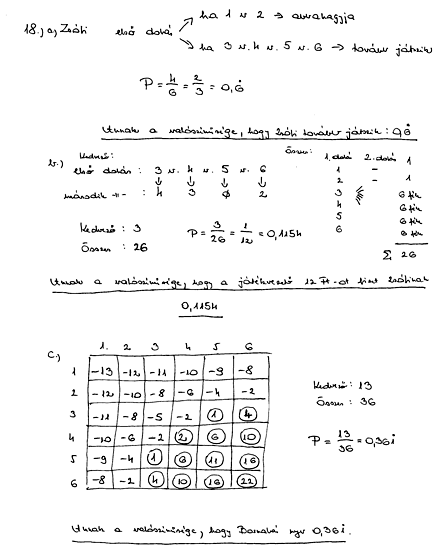 ha 1 v 2 → abbahagyja
18.) a, Zsófi első dobás
ha 3 v. 4 v. 5 v. 6 → tovább játszik
P = 4/6 = 2/3 = 0,6
Annak a valószínűsége, hogy Zsófi tovább játszik: 0,6
b.) Kedvező: Összes: 1. dobás 2. dobás
első dobás: 3 v. 4 v. 5 v. 6 1 - 1
↓ ↓ ↓ ↓ 2 - 1
második -"- : 4 3 ø 2 3 6 féle
4 6 féle
5 6 féle
Kedvező : 3 P = 3/26 = 1/12 = 0,1154 6 6 féle
Összes : 26 Σ 26
Annak a valószínűsége, hogy a játékvezető 12 Ft-ot fizet Zsófinak
0,1154
C.)
1. 2 3 4 5 6
1 -13 -12 -11 -10 -9 -8
2 -12 -10 -8 -6 -4 -2
3 -11 -8 -5 -2 1 4
4 -10 -6 -2 2 6 10
5 -9 -4 1 6 11 16
6 -8 -2 4 10 16 22
Kedvező : 13
Összes : 36
P = 13/36 = 0,361
Annak a valószínűsége, hogy Barnabás nyer 0,361.